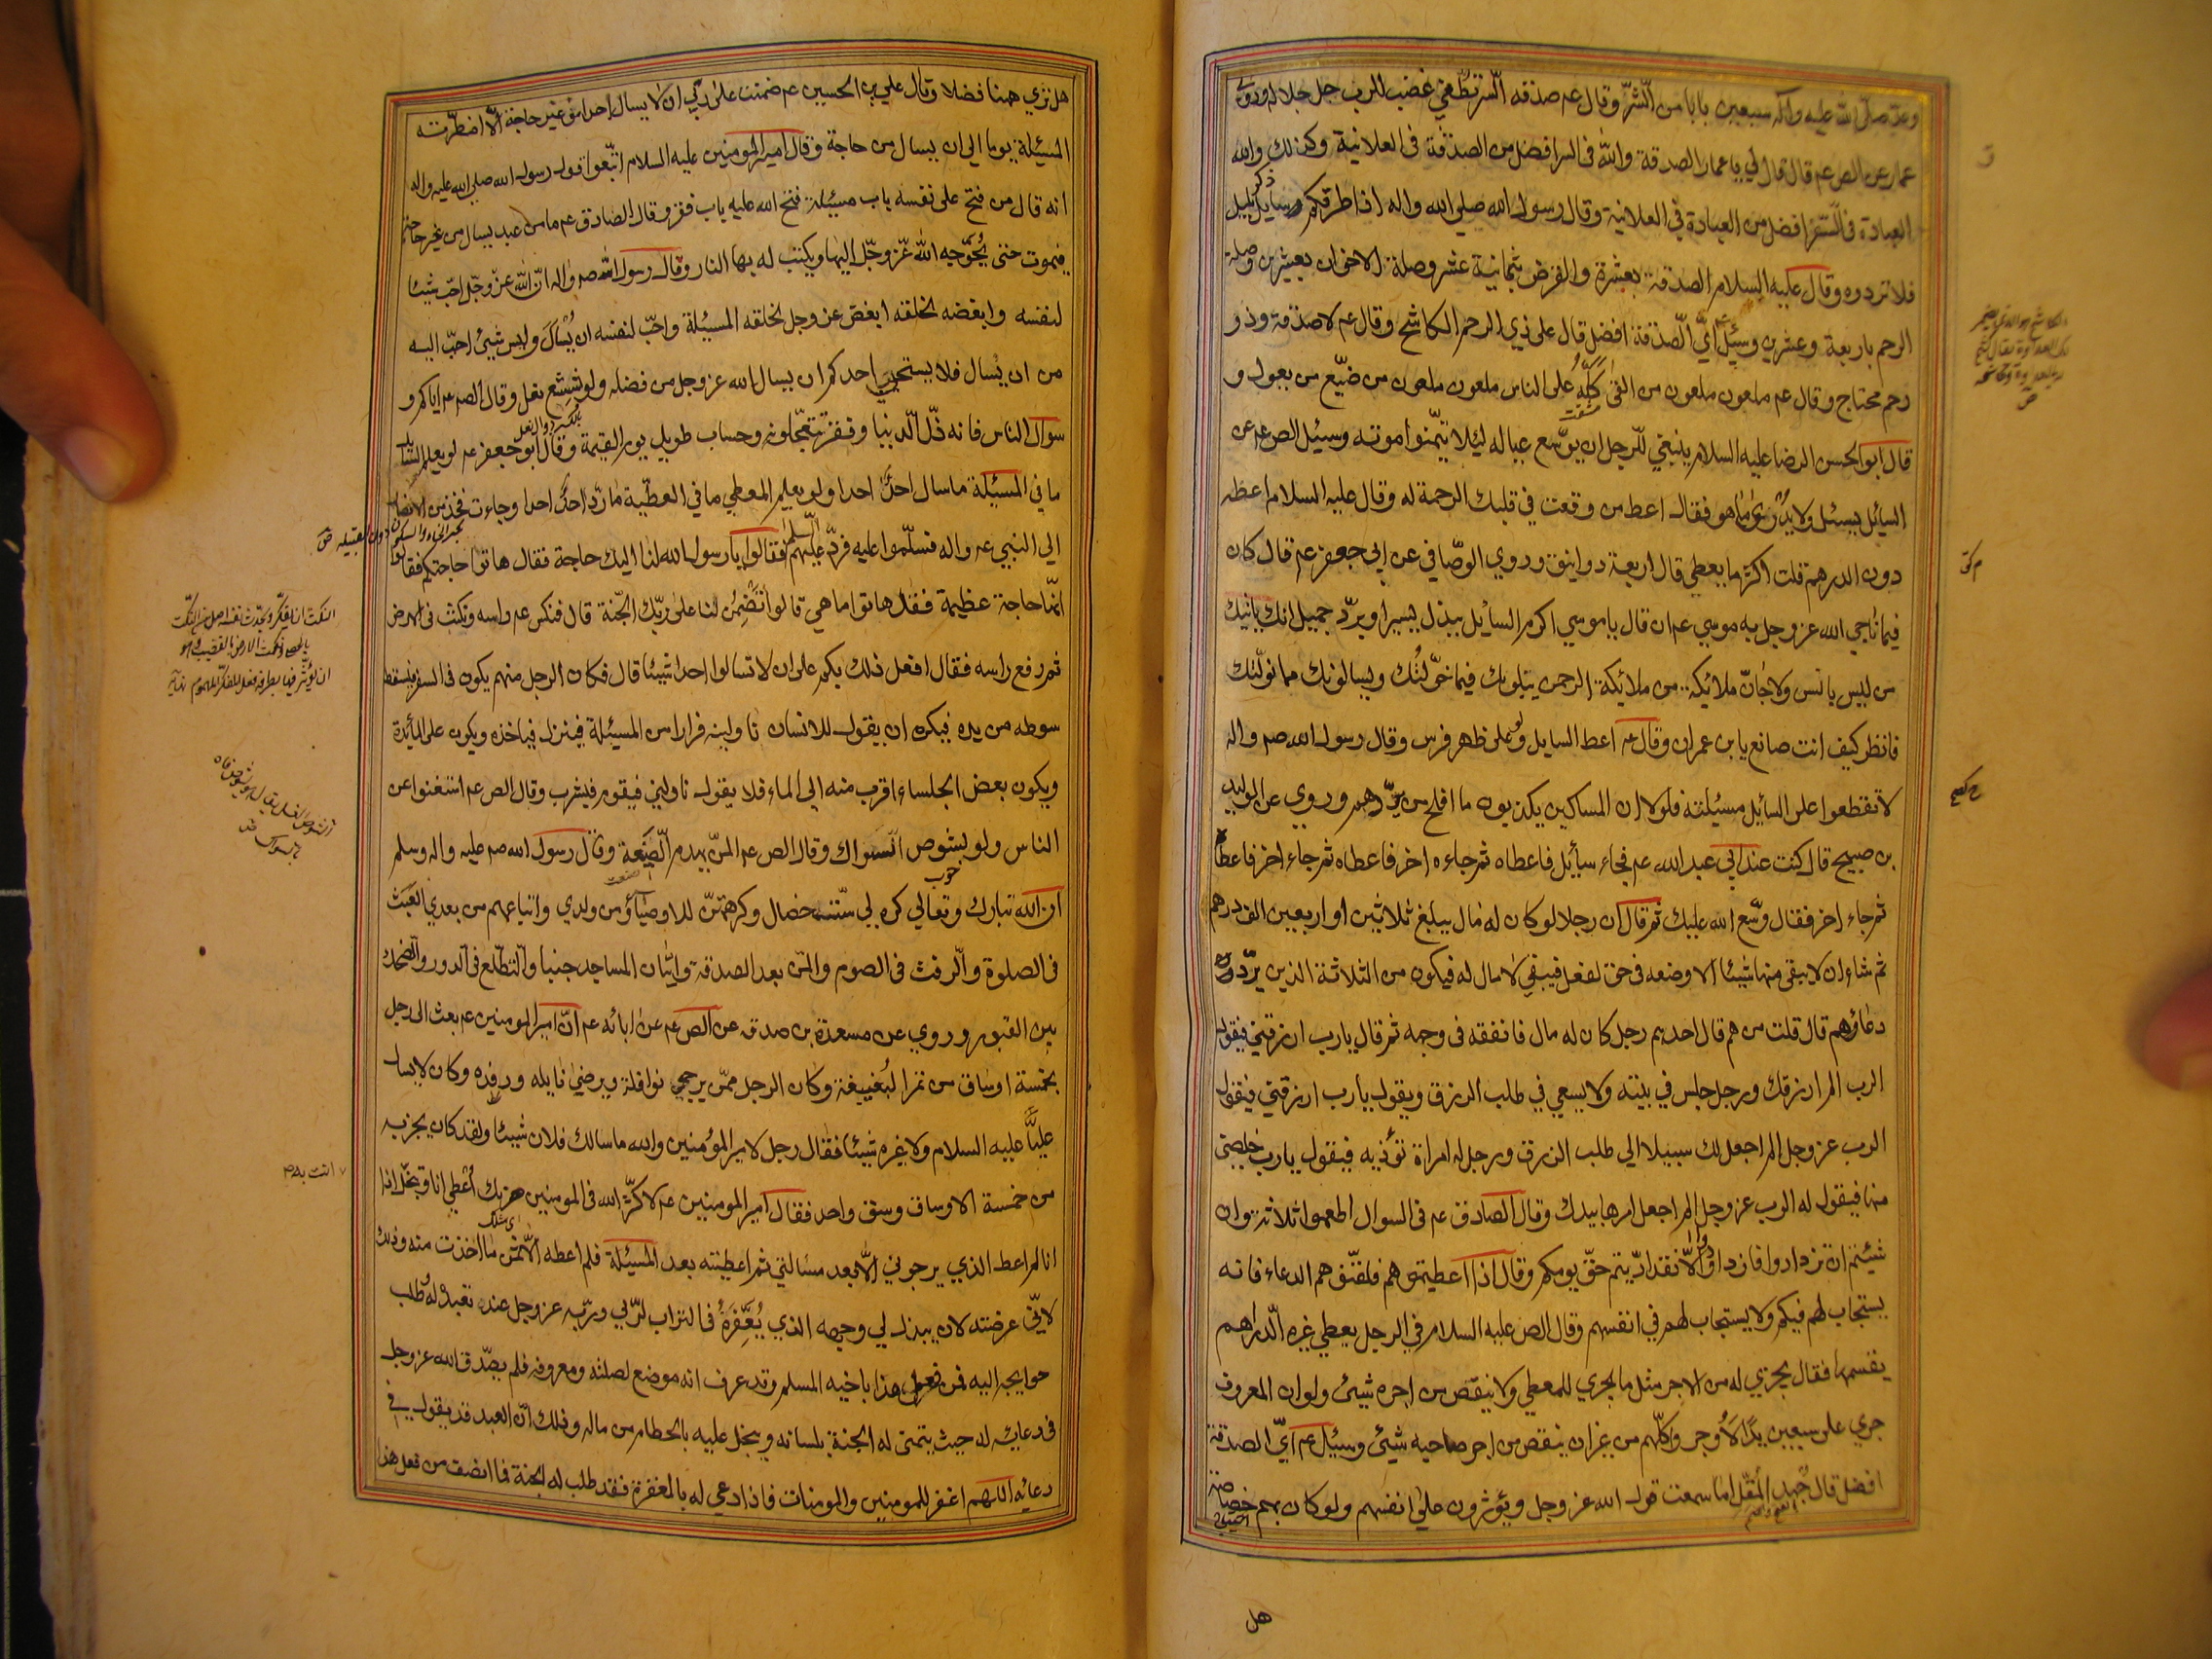 وعد صلى الله عليه وآله سبعين بابا من الشر وقال عم صدقه السر تطفي غضب الرب جل جلاله وروى
عمار عن الص عم قال قال لي يا عمار الصدقة والله فى السر افضل من الصدقة فى العلانية وكذلك والله
العبادة فى السر افضل من العبادة في العلانية وقال رسول الله صلي الله واله اذا طرقكم سايل ذكر بليل
فلا تردوه وقال عليه السلام الصدقة بعشرة والقرض بثمانية عشر وصلة الاخوان بعشرين وصلة
الرحم باربعة وعشرين وسئيل عم اي الصدقة افضل قال على ذي الرحم الكاشح وقال عم لا صدقة وذو
رحم محتاج وقال عم ملعون ملعون من القى كله على الناس ملعون ملعون من ضيع من يعول و
قال ابو الحسن الرضا عليه السلام ينبغي للرجل ان يوسع عياله ليئلا يتمنوا موته وسئيل الص عم عن
السائيل يسئل ولا يدرى ما هو فقال اعط من وقعت في قلبك الرحمة له وقال عليه السلام اعطه
دون الدرهم قلت اكثر ما يعطي قال اربعة دوانيق وروي الوصافي عن ابي جعفر عم قال كان
فيما ناجي الله عز وجل به موسي عم ان قال يا موسي اكرم السائيل ببذل يسير او برد جميل انك يأتيك
من ليس بانس ولا جان ملائكه من ملائيكة الرحمن يبلونك فيما خولتك ويسالونك مما نولتك
فانظر كيف انت صانع يا بن عمران وقال عم اعط السايل ولو على ظهر فرس وقال رسول الله صم واله
لا تقطعوا على السائيل مسئيلته فلولا ان المساكين يكذبون ما افلح من يردهم وروي عن الوليد
بن صبيح قال كنت عند ابي عبد الله عم فجاء سائيل فاعطاه ثم جاءه اخر فاعطاه ثم جاء اخر فاعطاه
ثم جاء اخر فقال وسع الله عليك ثم قال ان رجلا لو كان له مال يبلغ ثلاثين او اربعين الف درهم
ثم شاء ان لا يبقى منها شيئا الا وضعه فى حق لفعل فيبقي لا مال له فيكون من الثلاثة الذين يرد
دعاؤهم قال قلت من هم قال احدهم رجل كان له مال فانفقه فى وجهه ثم قال يا رب ارزقني فيقول
الرب الم ارزقك ورجل جلس في بيته ولا يسعي في طلب الرزق ويقول يا رب ارزقني فيقول
الرب عز وجل الم اجعل لك سبيلا الي طلب الرزق ورجل له امراة تؤذيه فيقول يا رب خلصني
منها فيقول له الرب عز وجل الم اجعل امرها بيدك وقال الصادق عم فى السوال اطعموا ثلاثة وان
شئيتم ان تزدادوا فازدادوا والا فقد اديتم حق يومكم وقال اذا اعطيتموهم فلقنوهم الدعاء فانه
يستجاب لهم فيكم ولا يستجاب لهم في انفسهم وقال الص عليه السلام في الرجل يعطي غيره الدراهم
يقسمها فقال يجزي له من الاجر مثل ما يجري للمعطي ولا ينقص من اجره شيئ ولو ان المعروف
جري على سبعين يدا لاوجروا كلهم من غير ان ينقص من اجر صاحبه شيئ وسئيل عم اي الصدقة
افضل قال جهد المقل اما سمعت قول الله عز وجل ويؤثرون على انفسهم ولو كان بهم خصاصة
هل
هل تري ههنا فضلا وقال علي بن الحسين عم ضمنت على ربي ان لا يسال احد من غير حاجة الا اضطرته
المسئيلة يوما الي ان يسال من حاجة وقال امير المومنين عليه السلام اتبعوا قول رسول الله صلى الله عليه واله
انه قال من فتح على نفسه باب مسئيلة فتح الله عليه باب فقر وقال الصادق عم ما من عبد يسال من غير حاجة
فيموت حتى يحوجه الله عز وجل اليها ويكتب له بها النار وقال رسول الله صم واله ان الله عز وجل احب شيئا
لنفسه وابغضه لخلقه ابغض عز وجل لخلقه المسيئلة واحب لنفسه ان يسأل وليس شيئ احب اليه
من ان يسال فلا يستحيي احدكم ان يسال الله عز وجل من فضله ولو شسع نعل وقال الص عم اياكم و
سوال الناس فانه ذل الدنيا وفقر تتعجلونه وحساب طويل يوم القيمة وقال ابو جعفر عم لو يعلم السايل
ما في المسئيلة ما سال احد احدا ولو يعلم المعطي ما في العطية ما رد احد احدا وجاءت فخذ من الانصار
الي النبي عم واله فسلموا عليه فرد عليهم السلم فقالوا يا رسول الله لنا اليك حاجة فقال هاتوا حاجتكم فقالوا
انها حاجة عظيمة فقال هاتوا ما هي قالوا تضمن لنا على ربك الجنة قال فنكس عم راسه ونكت فى الارض
ثم رفع راسه فقال افعل ذلك بكم على ان لا تسالوا احدا شيئا قال فكان الرجل منهم يكون فى السفر فيسقط
سوطه من يده فيكره ان يقول للانسان ناولينه فرارا من المسيئلة فينزل فياخذه ويكون على المائدة
ويكون بعض الجلساء اقرب منه الي الماء فلا يقول ناولني فيقوم فيشرب وقال الص عم استغنوا عن
الناس ولو بشوص السواك وقال الص عم المن يهدم الصنيعة وقال رسول الله صم عليه واله وسلم
ان الله تبارك وتعالي كره لي ستته خصال وكرهتهن للاوصياء من ولدي واتباعهم من بعدي العبث
فى الصلوة والرفث فى الصوم والمن بعد الصدقة واتيان المساجد جنبا والتطلع فى الدور والضحك
بين القبور وروي عن مسعدة بن صدقه عن الص عم عن ابائه عم ان امير المومنين عم بعث الى رجل
بخمسة اوساق من تمر البغيبغة وكان الرجل ممن يرجي نوافله ويرضى نايله ورفده وكان لا يسال
عليا عليه السلام ولا غيره شيئا فقال رجل لامير المؤمنين والله ما سالك فلان شيئا ولقد كان يجزيه
من خمسة الاوساق وسق واحد فقال امير المومنين عم لا كثر الله فى المومنين ضربك اعطي انا وتبخل انت
انا لم اعط الذي يرجوني الا بعد مسالتي ثم اعطيته بعد المسيئلة فلم اعطه الا ثمن ما اخذت منه وذلك
لاني عرضته لان يبذل لي وجهه الذي يعفره فى التراب لربي وربه عز وجل عند تعبده له وطلب
حوايجه اليه فمن فعل هذا باخيه المسلم وقد عرف انه موضع لصلته ومعروفه فلم يصدق الله عز وجل
فى دعايئه له حيث يتمنى له الجنة بلسانه ويبخل عليه بالحطام من ماله وذلك ان العبد قد يقول في
دعائه اللهم اغفر للمومنين والمومنات فاذا دعي له بالمغفرة فقد طلب له الجنة فما انصف من فعل هذا